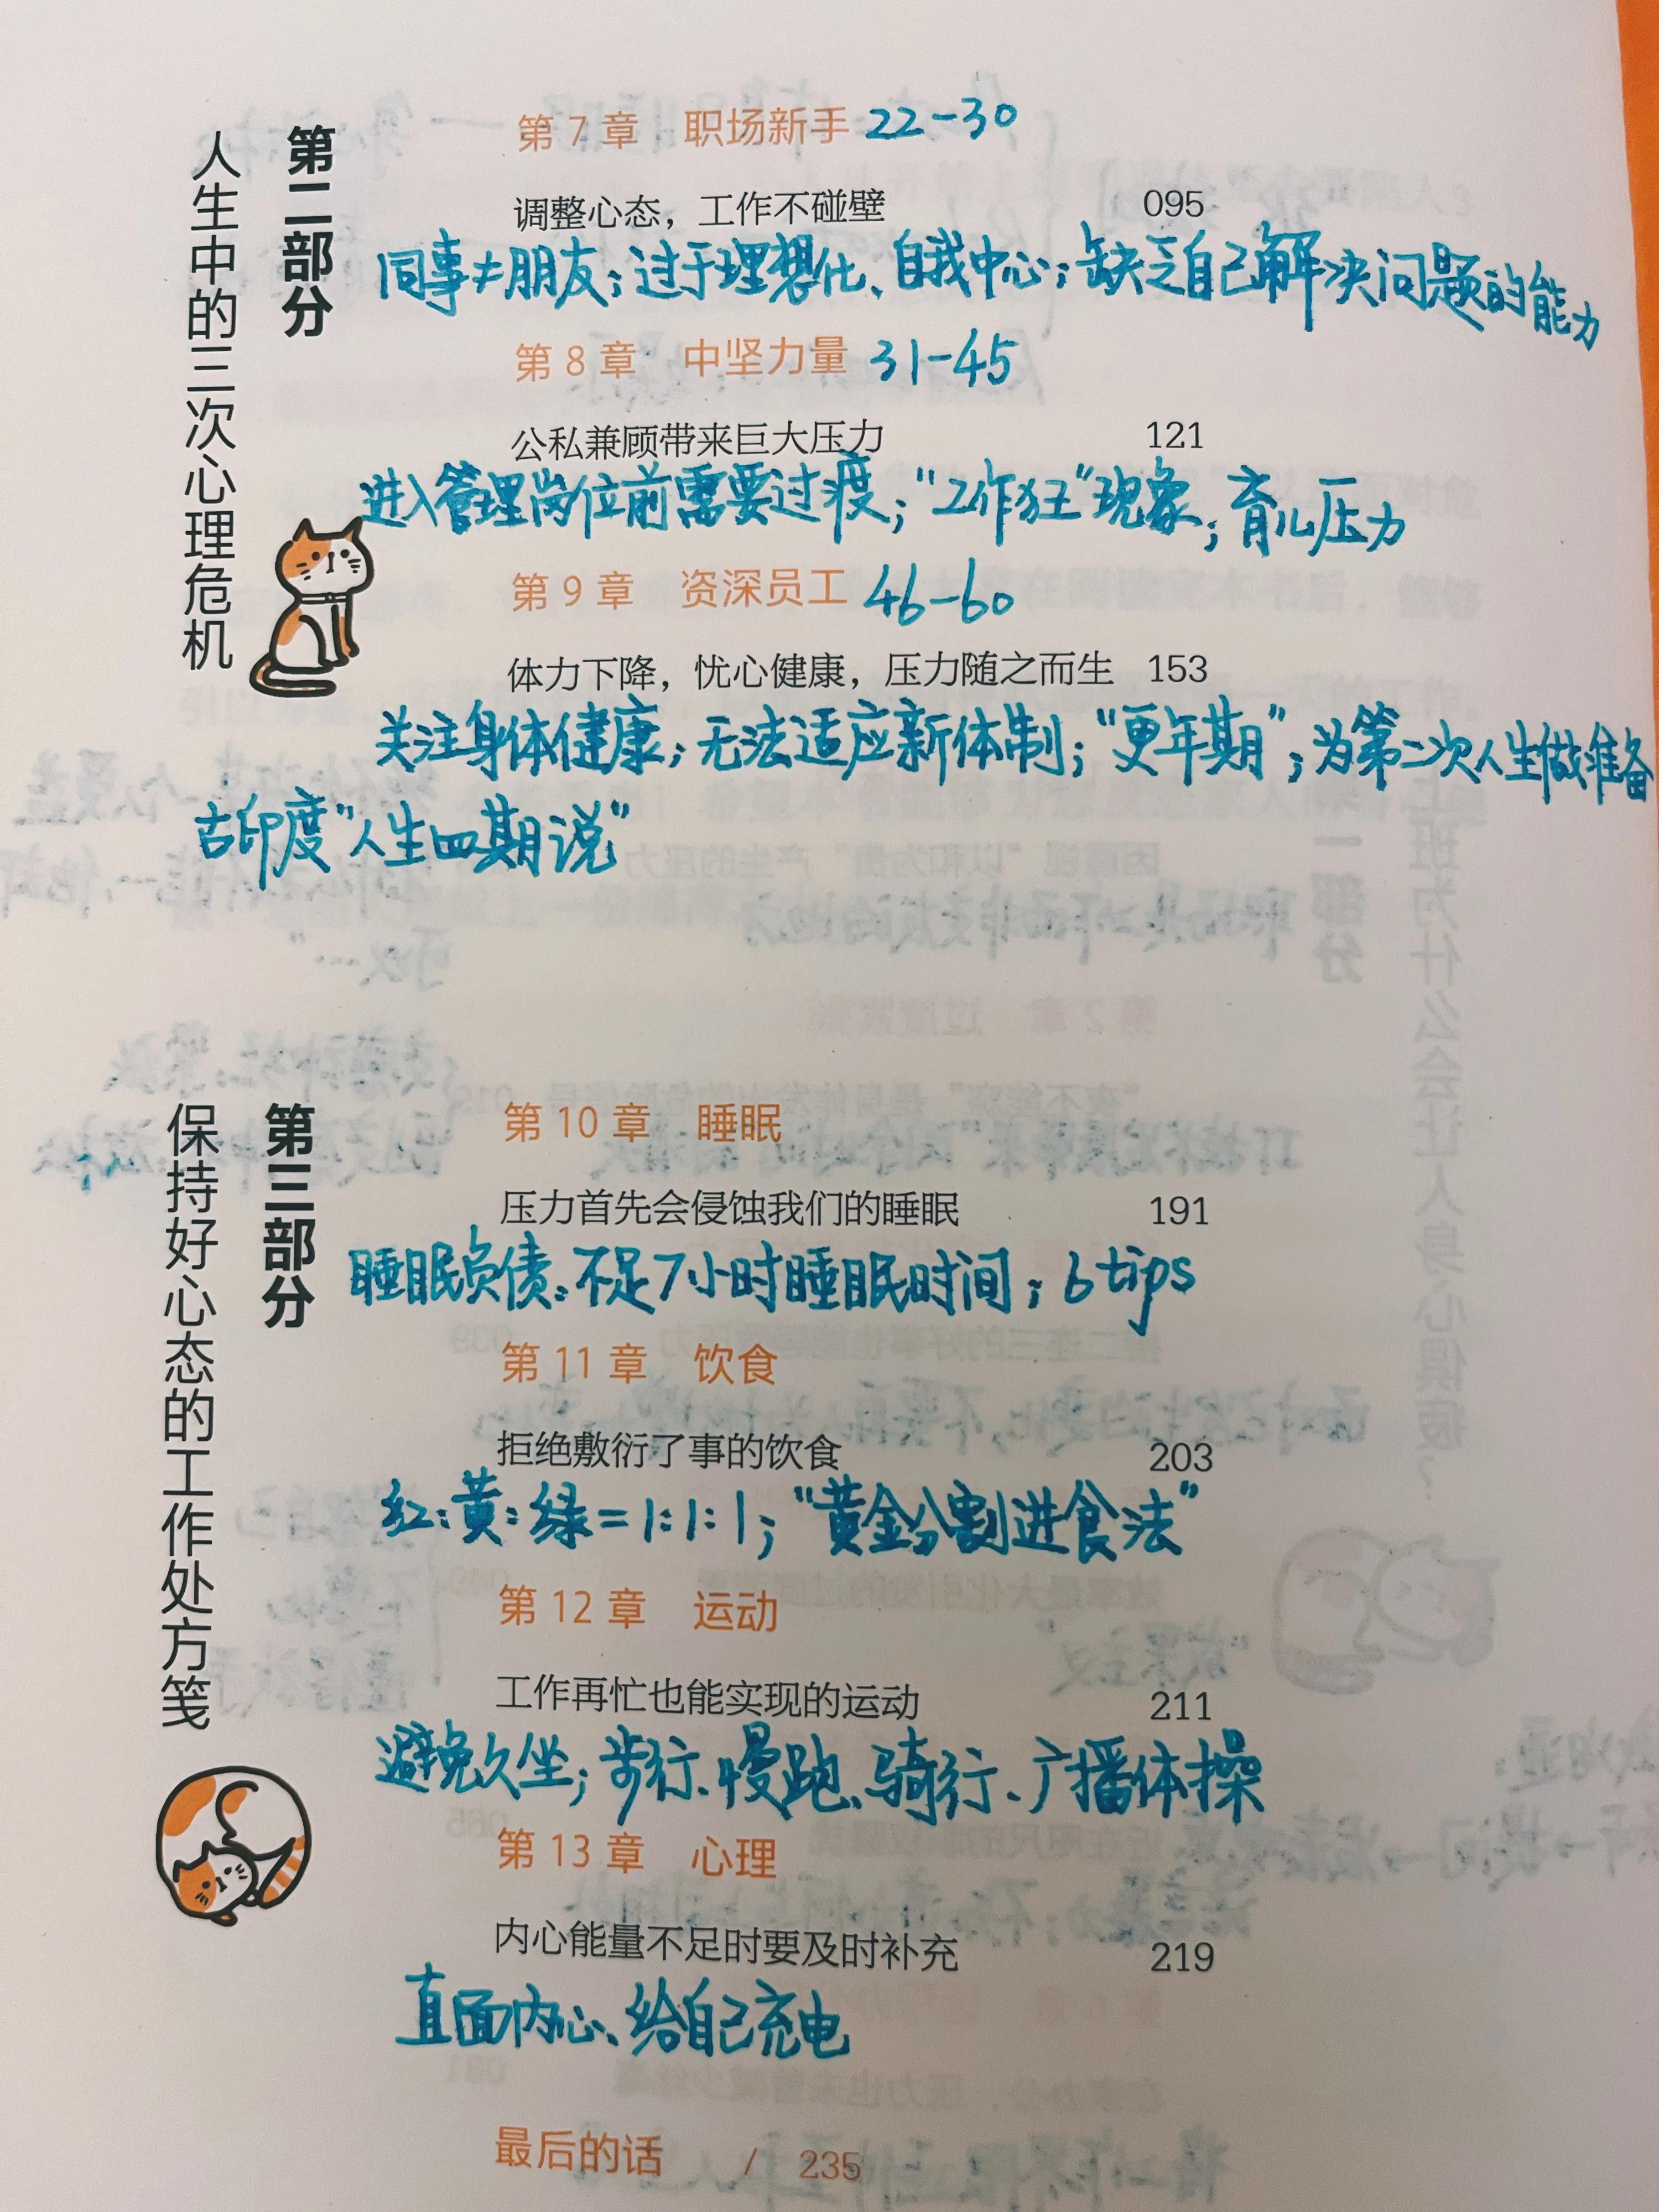 第二部分
人生中的三次心理危机
第7章 职场新手 22-30
调整心态，工作不碰壁 095
同事≠朋友；过于理想化、自我中心；缺乏自己解决问题的能力
第8章 中坚力量 31-45
公私兼顾带来巨大压力 121
进入管理岗位前需要过渡；“工作狂”现象；育儿压力
第9章 资深员工 46-60
体力下降，忧心健康，压力随之而生 153
关注身体健康；无法适应新体制；“更年期”；为第二次人生做准备
古印度“人生四期说”
第三部分
保持好心态的工作处方笺
第10章 睡眠
压力首先会侵蚀我们的睡眠 191
睡眠负债：不足7小时睡眠时间；6 tips
第11章 饮食
拒绝敷衍了事的饮食 203
红:黄:绿=1:1:1；“黄金分割进食法”
第12章 运动
工作再忙也能实现的运动 211
避免久坐；步行、慢跑、骑行、广播体操
第13章 心理
内心能量不足时要及时补充 219
直面内心、给自己充电
最后的话 / 235